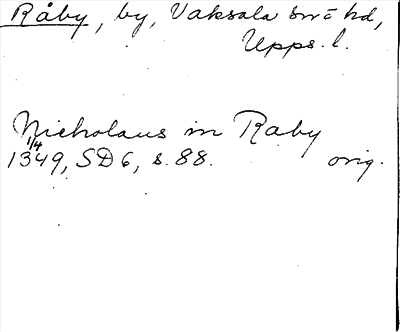 Råby, by, Vaksala sn o hd,
Upps. l.
Nicholaus in Raby
1/4
1349, SD 6, s. 88. orig.